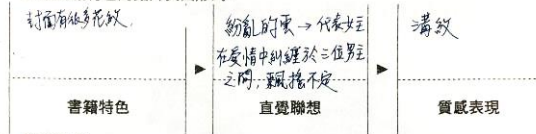 封面有很多花紋.
紛亂的雲→代表女主
在愛情中糾纏於三位男主
之間,飄搖不定
溝紋
書籍特色
直覺聯想
質感表現